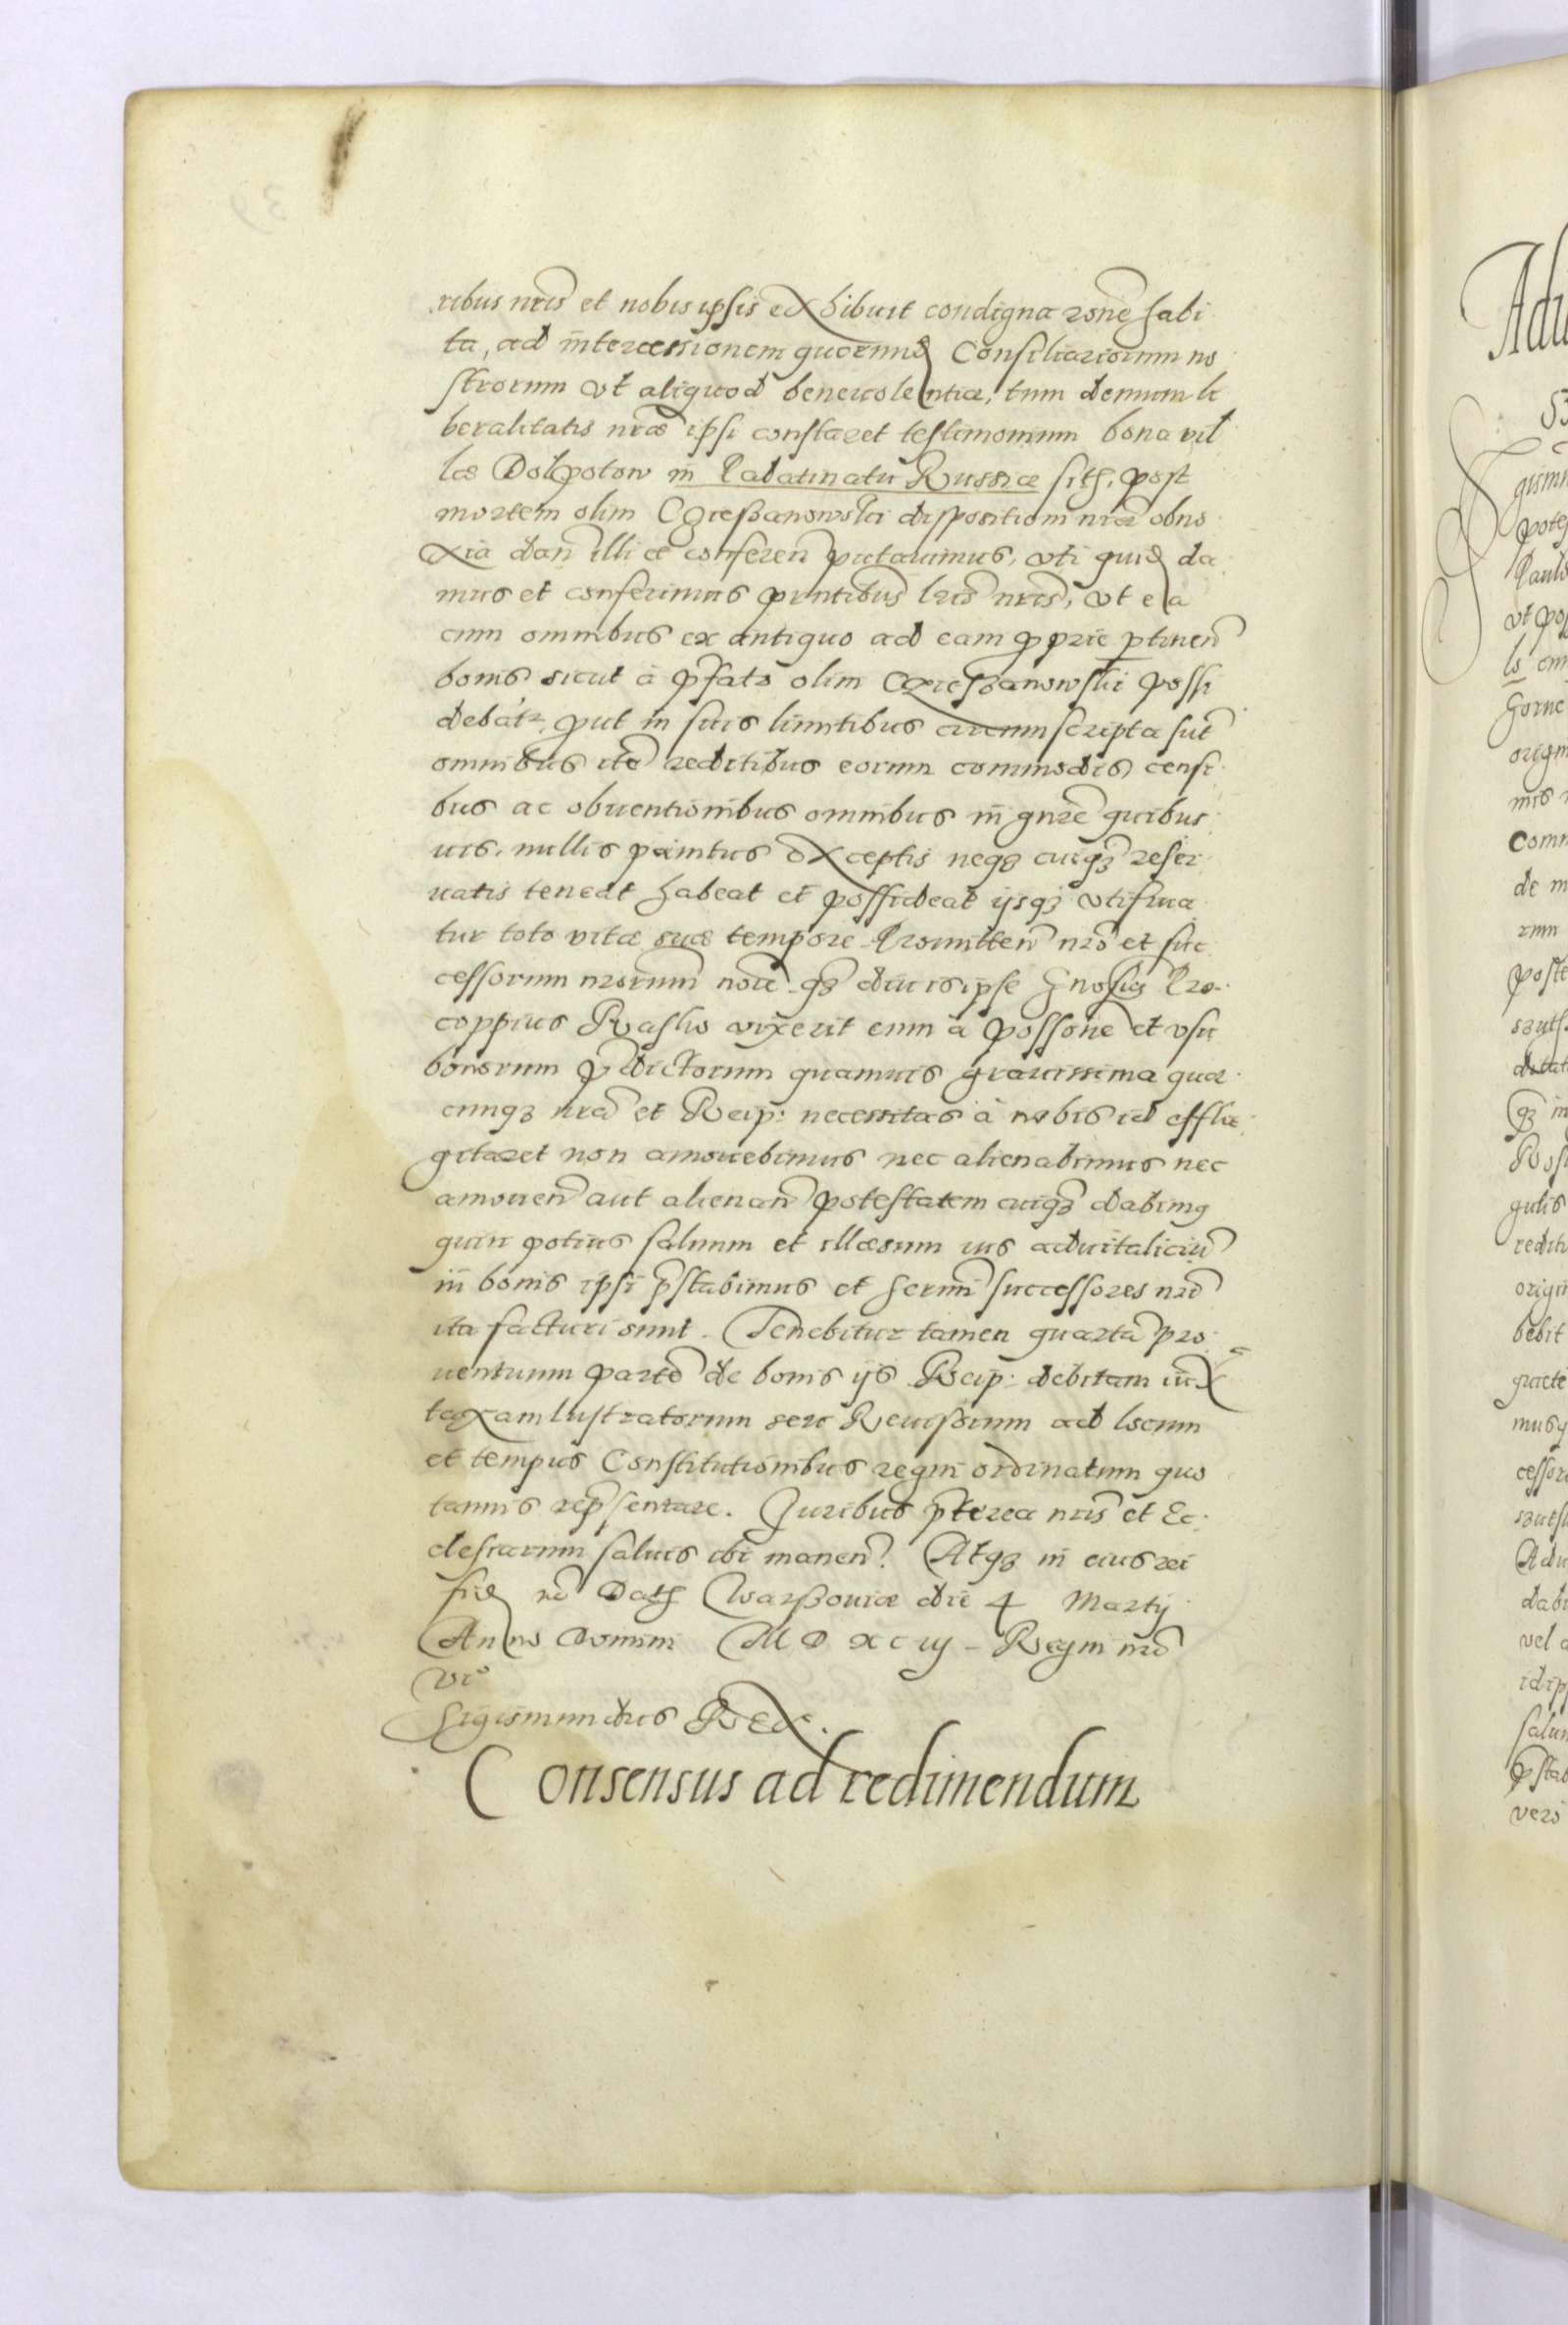 ribus nris et nobis ipsis exhibuit condigna rone habi
ta, ad intercessionem quorund Consiliariorum no
strorum ut aliquod benevolentiæ, tum demum li
beralitatis nræ ipsi constaret testimonium bona vil
læ Dolpotow in Palatinatu Russiæ sith, post
mortem olim dispositioni nræ obno
xia dan illi et conferen putavimus, uti quid da
mus et conferimus pntibus lris nris, ut ea
cum omnibus ex antiquo ad eam proprie ptinen
bonis sicut à pfato olim possi
debat, put in suis limitibus circumscripta sut
omnibus ite reditibus eorum commodis censi
bus ac obventionibus omnibus in gnre quibus
vis, nullis penitus exceptis neqз cuiqз reser
vatis teneat habeat et possideat ijsqз utifrua
tur toto vitæ suæ tempore. Promitten nro et suc
cessorum nrorum noie qз diu is ipse Gnosus Pro-
coppius Raslio vixerit eum à possone et usu
bonorum pdictorum quamvis gravissima quæ
cunqз nra et Reip: necessitas à nobis id effla
gitaret non amovebimus nec alienabimus nec
amoven aut alienan potestatem cuiqз dabimus
quin potius salvum et illæsum ius advitaliciu
in bonis ipsi pstabimus et sermi successores nri
ita facturi sunt. Tenebitur tamen quarta pro
ventuum parte de bonis ijs Reip: debitam iux
taxam lustratorum seu Revisorum ad locum
et tempus Constitutionibus regni ordinatum quo
tannis repsentare. Juribus pterea nris et Ec
clesiarum salvis ibi manen. Atqз in eius rei
fid Dath Warssoviæ die 4 Martij
Anno Domini M D XC iij - Regni nri
vi°
Sigismundus Rex.
Consensus ad redimendum